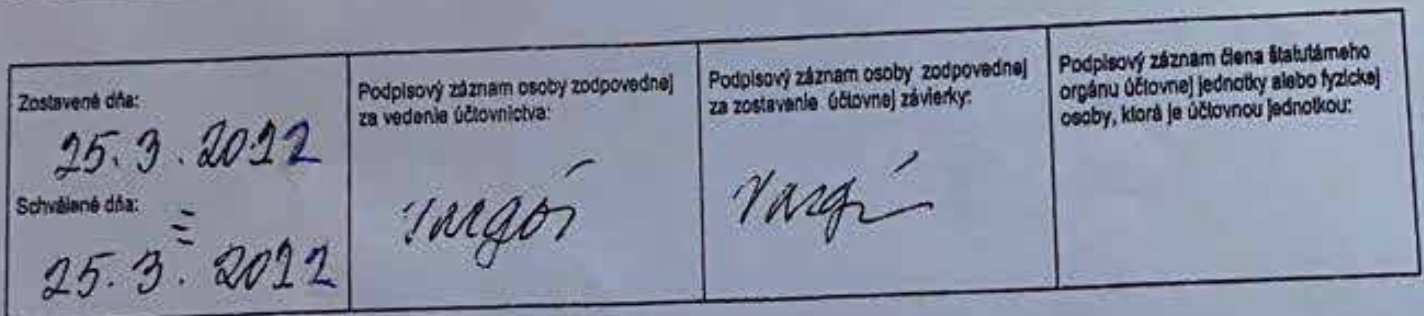 Zostavené dňa:
25.3.2022
Schválené dňa:
25.3.2022
Podpisový záznam osoby zodpovednej
za vedenie účtovníctva:
Podpisový záznam osoby zodpovednej
za zostavenie účtovnej závierky:
Podpisový záznam člena štatutárneho
orgánu účtovnej jednotky alebo fyzickej
osoby, ktorá je účtovnou jednotkou: